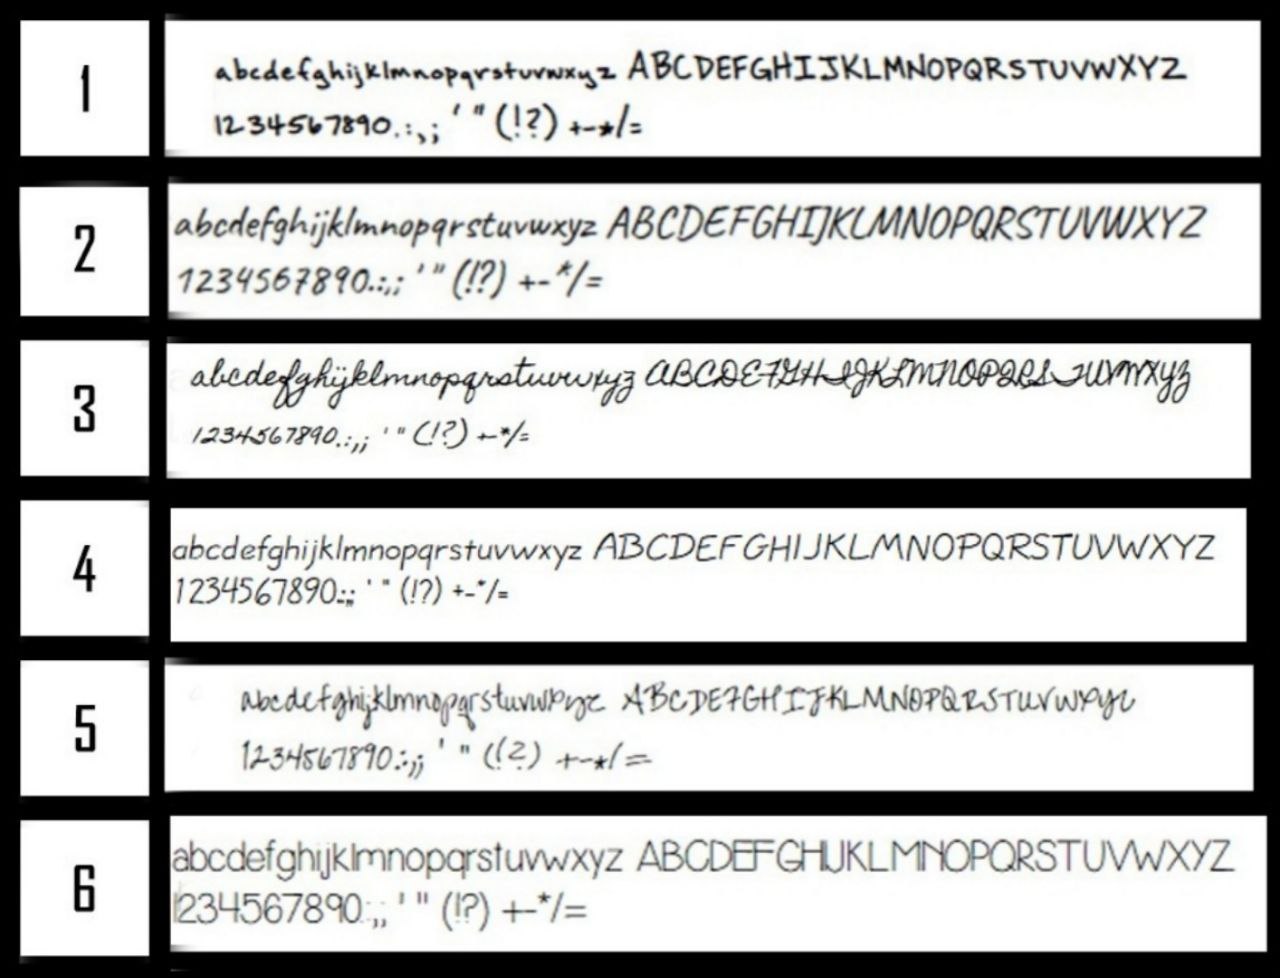 1
abcdefghijklmnopqrstuvwxyz ABCDEFGHIJKLMNOPQRSTUVWXYZ
1234567890.:,; ' " (!?) +-*/=
2
abcdefghijklmnopqrstuvwxyz ABCDEFGHIJKLMNOPQRSTUVWXYZ
1234567890.:,; ' " (!?) +-*/=
3
abcdefghijklmnopqrstuvwxyz ABCDEFGHIJKLMNOPQRSTUVWXYZ
1234567890.:,; ' " (!?) +-*/=
4
abcdefghijklmnopqrstuvwxyz ABCDEFGHIJKLMNOPQRSTUVWXYZ
1234567890.:,; ' " (!?) +-*/=
5
abcdefghijklmnopqrstuvwxyz ABCDEFGHIJKLMNOPQRSTUVWXYZ
1234567890.:,; ' " (!?) +-*/=
6
abcdefghijklmnopqrstuvwxyz ABCDEFGHIJKLMNOPQRSTUVWXYZ
1234567890.:,; ' " (!?) +-*/=